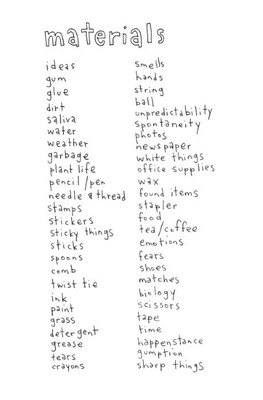 materials
ideas
gum
glue
dirt
saliva
water
weather
garbage
plant life
pencil/pen
needle & thread
stamps
stickers
sticky things
sticks
spoons
comb
twist tie
ink
paint
grass
detergent
grease
tears
crayons
smells
hands
string
ball
unpredictability
spontaneity
photos
newspaper
white things
office supplies
wax
found items
stapler
food
tea/coffee
emotions
fears
shoes
matches
biology
scissors
tape
time
happenstance
gumption
sharp things